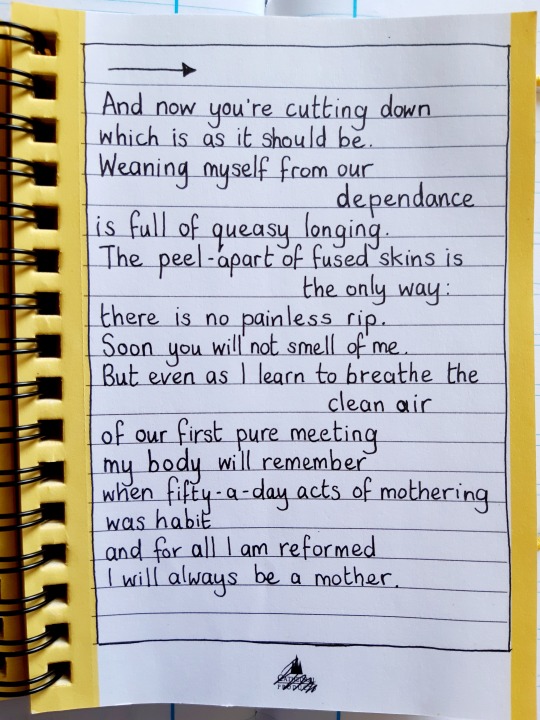 And now you're cutting down
which is as it should be.
Weaning myself from our
dependance
is full of queasy longing.
The peel-apart of fused skins is
the only way:
there is no painless rip.
Soon you will not smell of me.
But even as I learn to breathe the
clean air
of our first pure meeting
my body will remember
when fifty-a-day acts of mothering
was habit
and for all I am reformed
I will always be a mother.